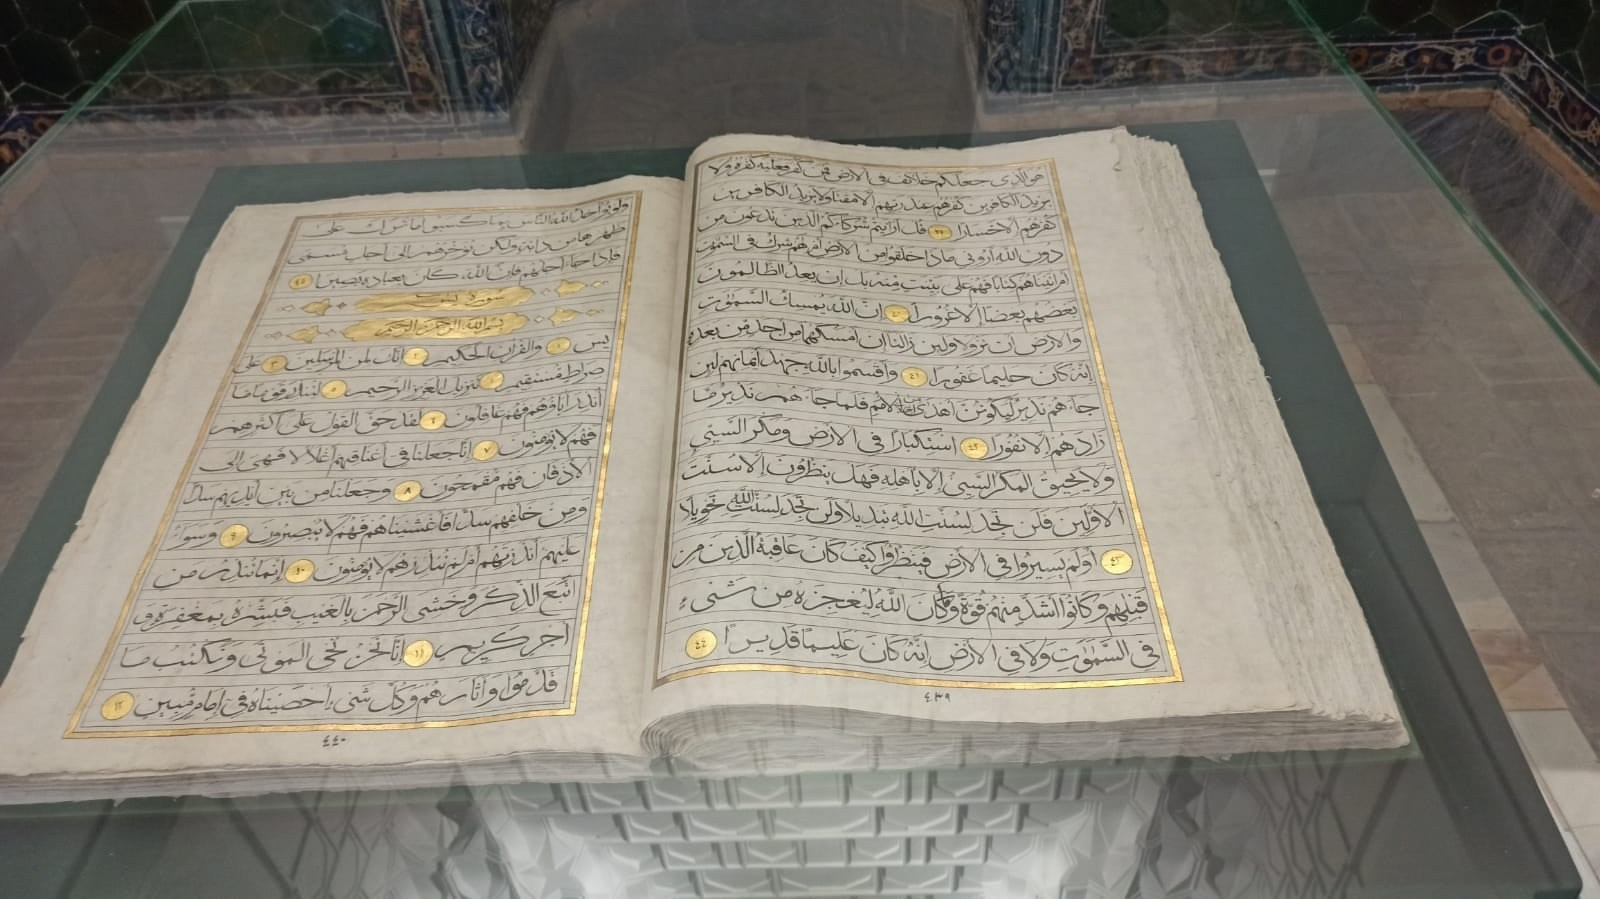 هو الذي جعلكم خلائف في الارض فمن كفر فعليه كفره ولا
يزيد الكافرين كفرهم عند ربهم الا مقتا ولا يزيد الكافرين
كفرهم الا خسارا ٣٩ قل ارايتم شركاءكم الذين تدعون من
دون الله اروني ماذا خلقوا من الارض ام لهم شرك في السموت
ام اتيناهم كتابا فهم على بينت منه بل ان يعد الظالمون
بعضهم بعضا الا غرورا ٤٠ ان الله يمسك السموت
والارض ان تزولا ولين زالتا ان امسكهما من احد من بعده
انه كان حليما غفورا ٤١ واقسموا بالله جهد ايمانهم لين
جاءهم نذير ليكونن اهدى من احدى الامم فلما جاءهم نذير ما
زادهم الا نفورا ٤٢ استكبارا في الارض ومكر السيئ
ولا يحيق المكر السيئ الا باهله فهل ينظرون الا سنت
الاولين فلن تجد لسنت الله تبديلا ولن تجد لسنت الله تحويلا
٤٣ اولم يسيروا في الارض فينظروا كيف كان عاقبة الذين من
قبلهم وكانوا اشد منهم قوة وما كان الله ليعجزه من شيء
في السموت ولا في الارض انه كان عليما قديرا ٤٤
٤٣٩
ولو يؤاخذ الله الناس بما كسبوا ما ترك على
ظهرها من دابة ولكن يؤخرهم الى اجل مسمى
فاذا جاء اجلهم فان الله كان بعباده بصيرا ٤٥
سورة يس
بسم الله الرحمن الرحيم
يس ١ والقران الحكيم ٢ انك لمن المرسلين ٣ على
صراط مستقيم ٤ تنزيل العزيز الرحيم ٥ لتنذر قوما ما
انذر اباؤهم فهم غافلون ٦ لقد حق القول على اكثرهم
فهم لا يومنون ٧ انا جعلنا في اعناقهم اغلالا فهي الى
الاذقان فهم مقمحون ٨ وجعلنا من بين ايديهم سدا
ومن خلفهم سدا فاغشيناهم فهم لا يبصرون ٩ وسواء
عليهم ءانذرتهم ام لم تنذرهم لا يومنون ١٠ انما تنذر من
اتبع الذكر وخشي الرحمن بالغيب فبشره بمغفرة و
اجر كريم ١١ انا نحن نحي الموتى ونكتب ما
قدموا واثارهم وكل شيء احصيناه في امام مبين ١٢
٤٤٠